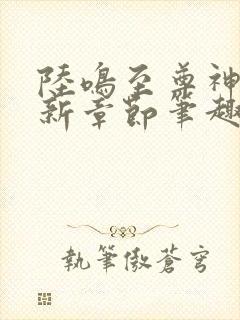 陸鳴至尊神
新章節筆趣
執筆傲蒼穹